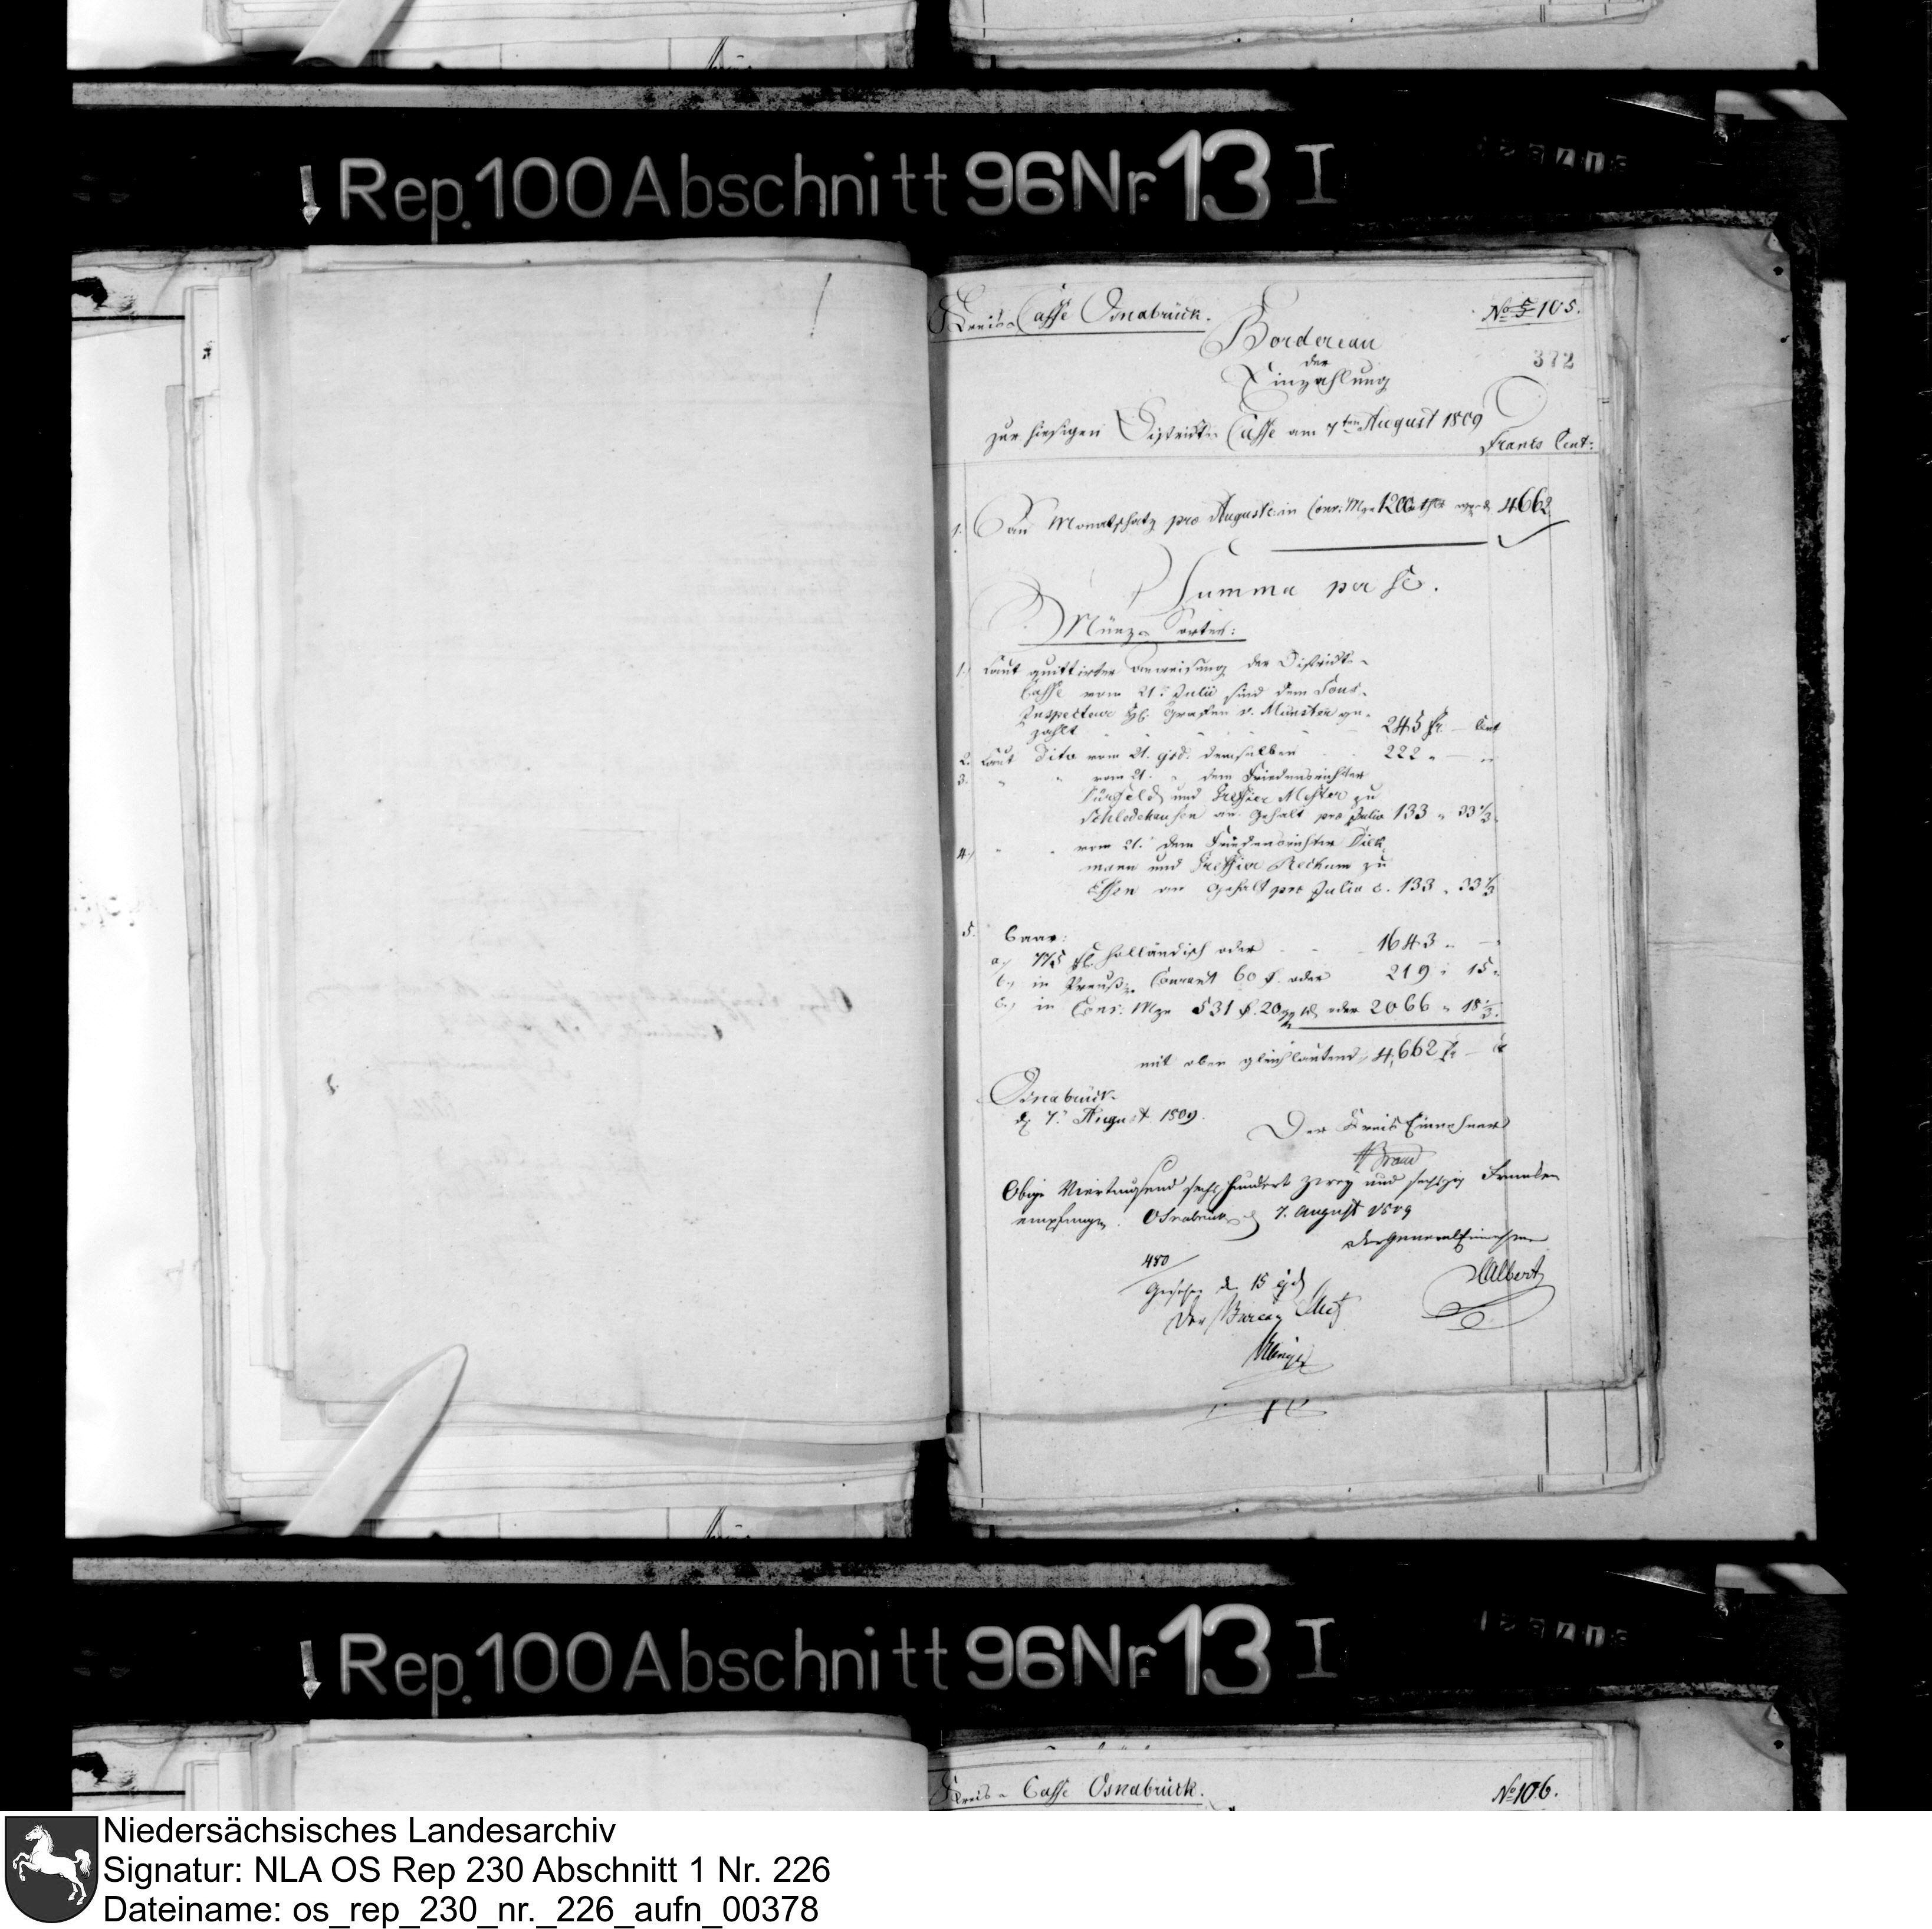 Rep. 100 Abschnitt 96 Nr. 13 I
Kreis-Casse Osnabrück.
No 5 105.
Bordereau
der
Einzahlung
372
zur hiesigen Districts Casse am 7ten August 1809
Francs Cent:
1. An Monatschatz pro August c. in Conv: Mze 1200 4662
Summa per se.
Münz-Sorten:
1.) Laut quittirter Anweisung der Districts-
Casse vom 21. Julii sind dem
Inspecteur H. Grafen v. Münster ge-
zahlt 245 fr — Cent
2. Laut Dito vom 21. ejd. demselben 222 " — "
3. " " vom 21. " dem Friedensrichter
und Greffier Meister zu
Schledehausen an Gehalt pro Julio 133 " 33 1/3
4.) " " vom 21. dem Friedensrichter Dick
mann und Greffier Reckum zu
Essen an Gehalt pro Julio c. 133 " 33 1/3
5. baar:
a.) 775 fl. holländisch oder 1643 " —
b.) in Preuß. Courant 60 oder 219 " 15
c.) in Conv: Mze 531 20 oder 2066 " 18 1/3
mit oben gleichlautend 4,662 fr —
Osnabrück
d. 7. August 1809.
Der Kreis Einnehmer
Obige Viertausend sechshundert zwey und sechszig Franken
empfangen. Osnabrück d 7. August 1809
der General Einnehmer
Albert
480
Gesehen d. 15 ejd
Der Bureau Chef
Rep. 100 Abschnitt 96 Nr. 13 I
Kreis-Casse Osnabrück.
No 106.
Niedersächsisches Landesarchiv
Signatur: NLA OS Rep 230 Abschnitt 1 Nr. 226
Dateiname: os_rep_230_nr._226_aufn_00378